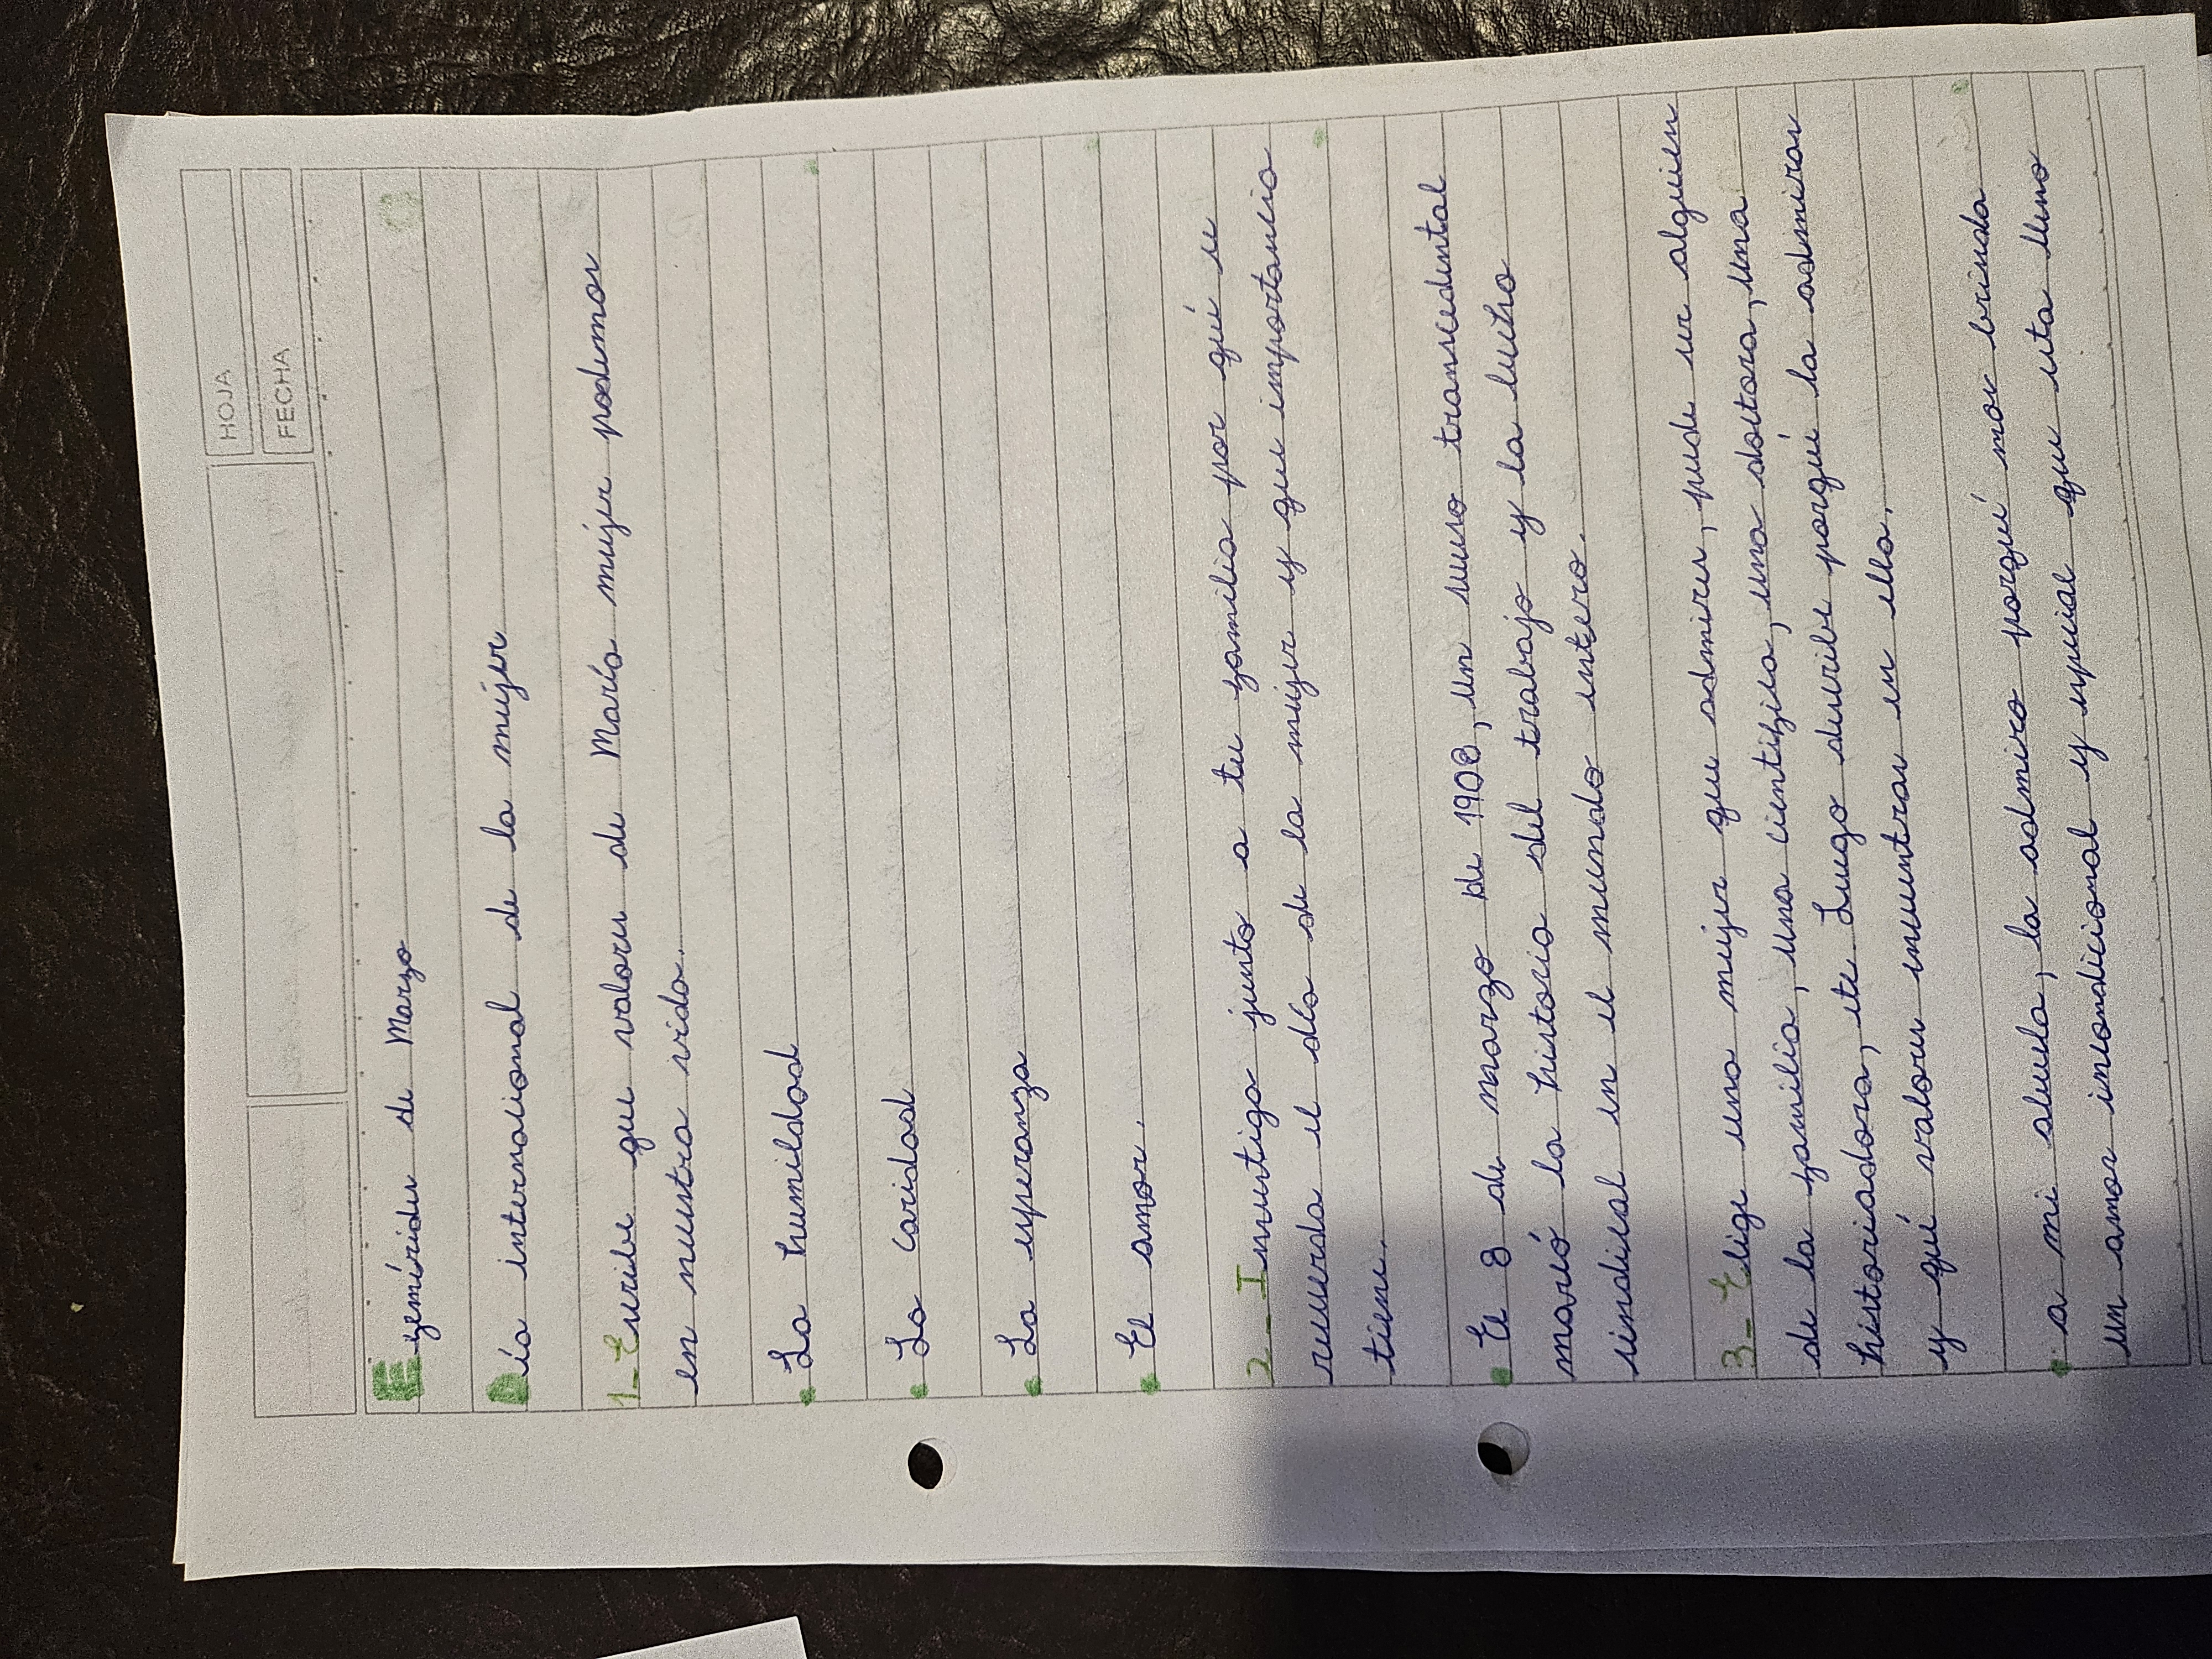 HOJA
FECHA
Efemérides de Marzo
Día internacional de la mújer
1_ Escribe que valores de María mújer podemos
en nuestra vida.
• La humildad
• La caridad
• La esperanza
• El amor.
2_ Investiga junto a tu familia por qué se
recuerda el día de la mújer y que importancia
tiene.
• El 8 de marzo de 1908, un suceso transcedental
marcó la historia del trabajo y la lucha
sindical en el mundo entero.
3_ Elige una mujer que admires, puede ser alguien
de la familia, una cientifica, una doctora, una
historiadora, etc. Luego describe porqué la admiras
y qué valores encuentras en ella.
• a mi abuela, la admiro porqué nos brinda
un amor incondicional y especial que esta lleno